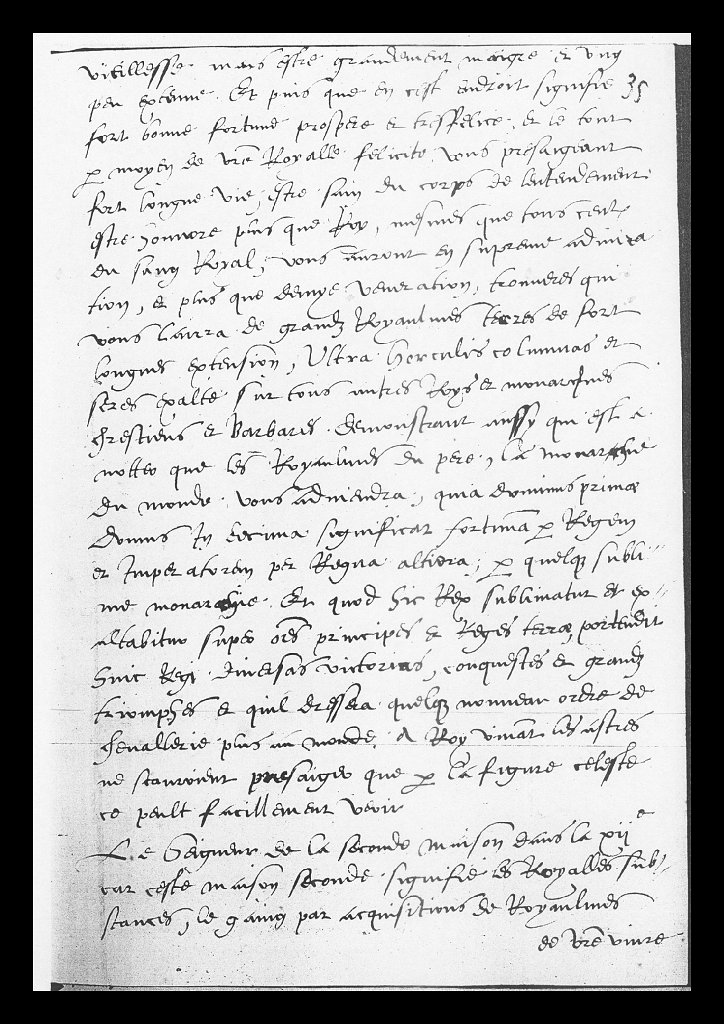 vieillesse mais estre grandement maigre et ung
peu extenue. Et puis que en cest endroit signifie
35
fort bonne fortune prospere et tresfelice, et le tout
p moyen de vre Royalle felicite, vous presaigeant
fort longue vie, estre sain du corps de lentendement
estre honnore plus que Roy, mesmes que tous ceulx
du sang Royal, vous auront en supreme admira
tion, et plus que demye veneration, trouueres qui
vous lairra de grandz Royaulmes terres de fort
longues extension, Ultra Herculis columnas et
seres exalte sur tous autres Roys et monarches
chrestiens et Barbares. demonstrant aussy qui est a
notter que les Royaulmes du pere, la monarchie
du monde vous aduiendra, quia dominus primae
domus In decima significat fortunam p Regem
et Imperatorem per Regna altiora, p quelq subli-
me monarchie. Et quod hic Rex sublimatur et ex-
altabitur super oes principes et Reges terrae, portendit
huic Regi diuersas victorias, conquestes et grandz
triomphes et quil dressera quelq nouueau ordre de
cheuallerie plus au monde. A Roy viuat les astres
ne scauroient presaiger que p la figure celeste
ce peult facillement veoir
Le Seigneur de la seconde maison dans la xii e
car ceste maison seconde signifie les Royalles sub-
stances, le gaing par acquisitions de Royaulmes
de vre viure